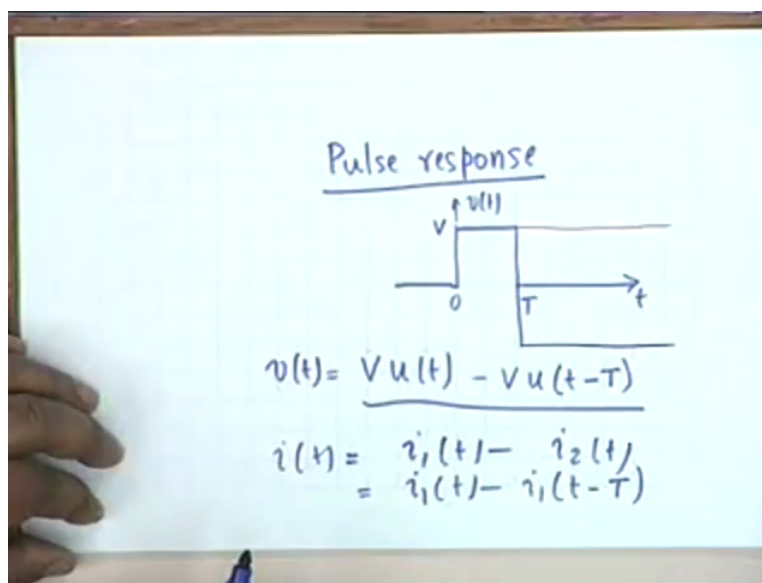 Pulse response
v(t)
V
0 T t
v(t) = V u(t) - V u(t-T)
i(t) = i₁(t) - i₂(t)
= i₁(t) - i₁(t-T)